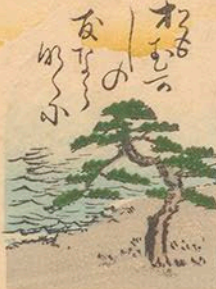 松もむか
しの
友なら
なくに